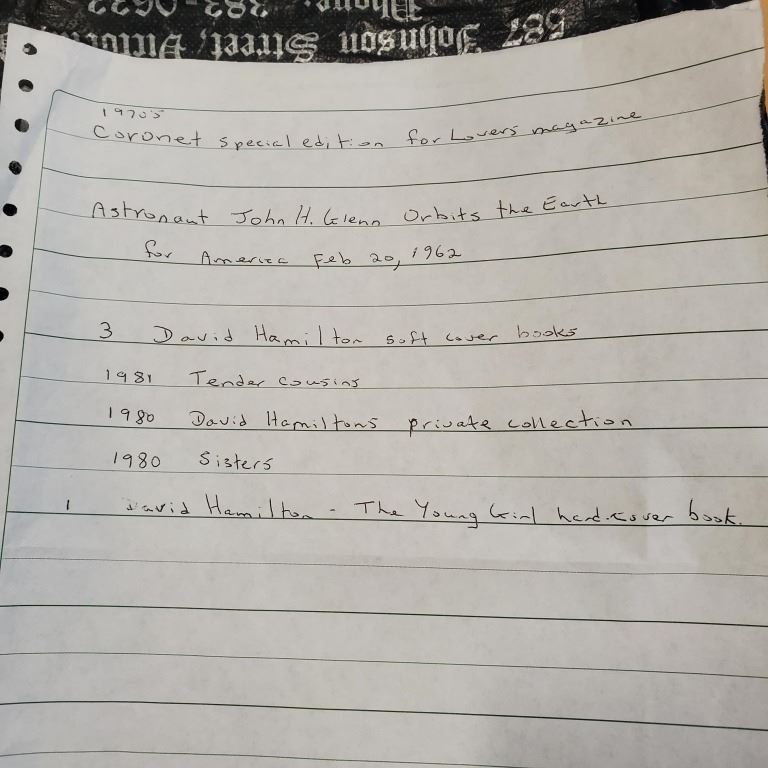 Phone: 383-0633
587 Johnson Street, Victoria,
1970's
Coronet special edition for Lovers magazine
Astronaut John H. Glenn Orbits the Earth
for America Feb 20, 1962
3 David Hamilton soft cover books
1981 Tender cousins
1980 David Hamiltons private collection
1980 Sisters
1 David Hamilton - The Young Girl hard.cover book.